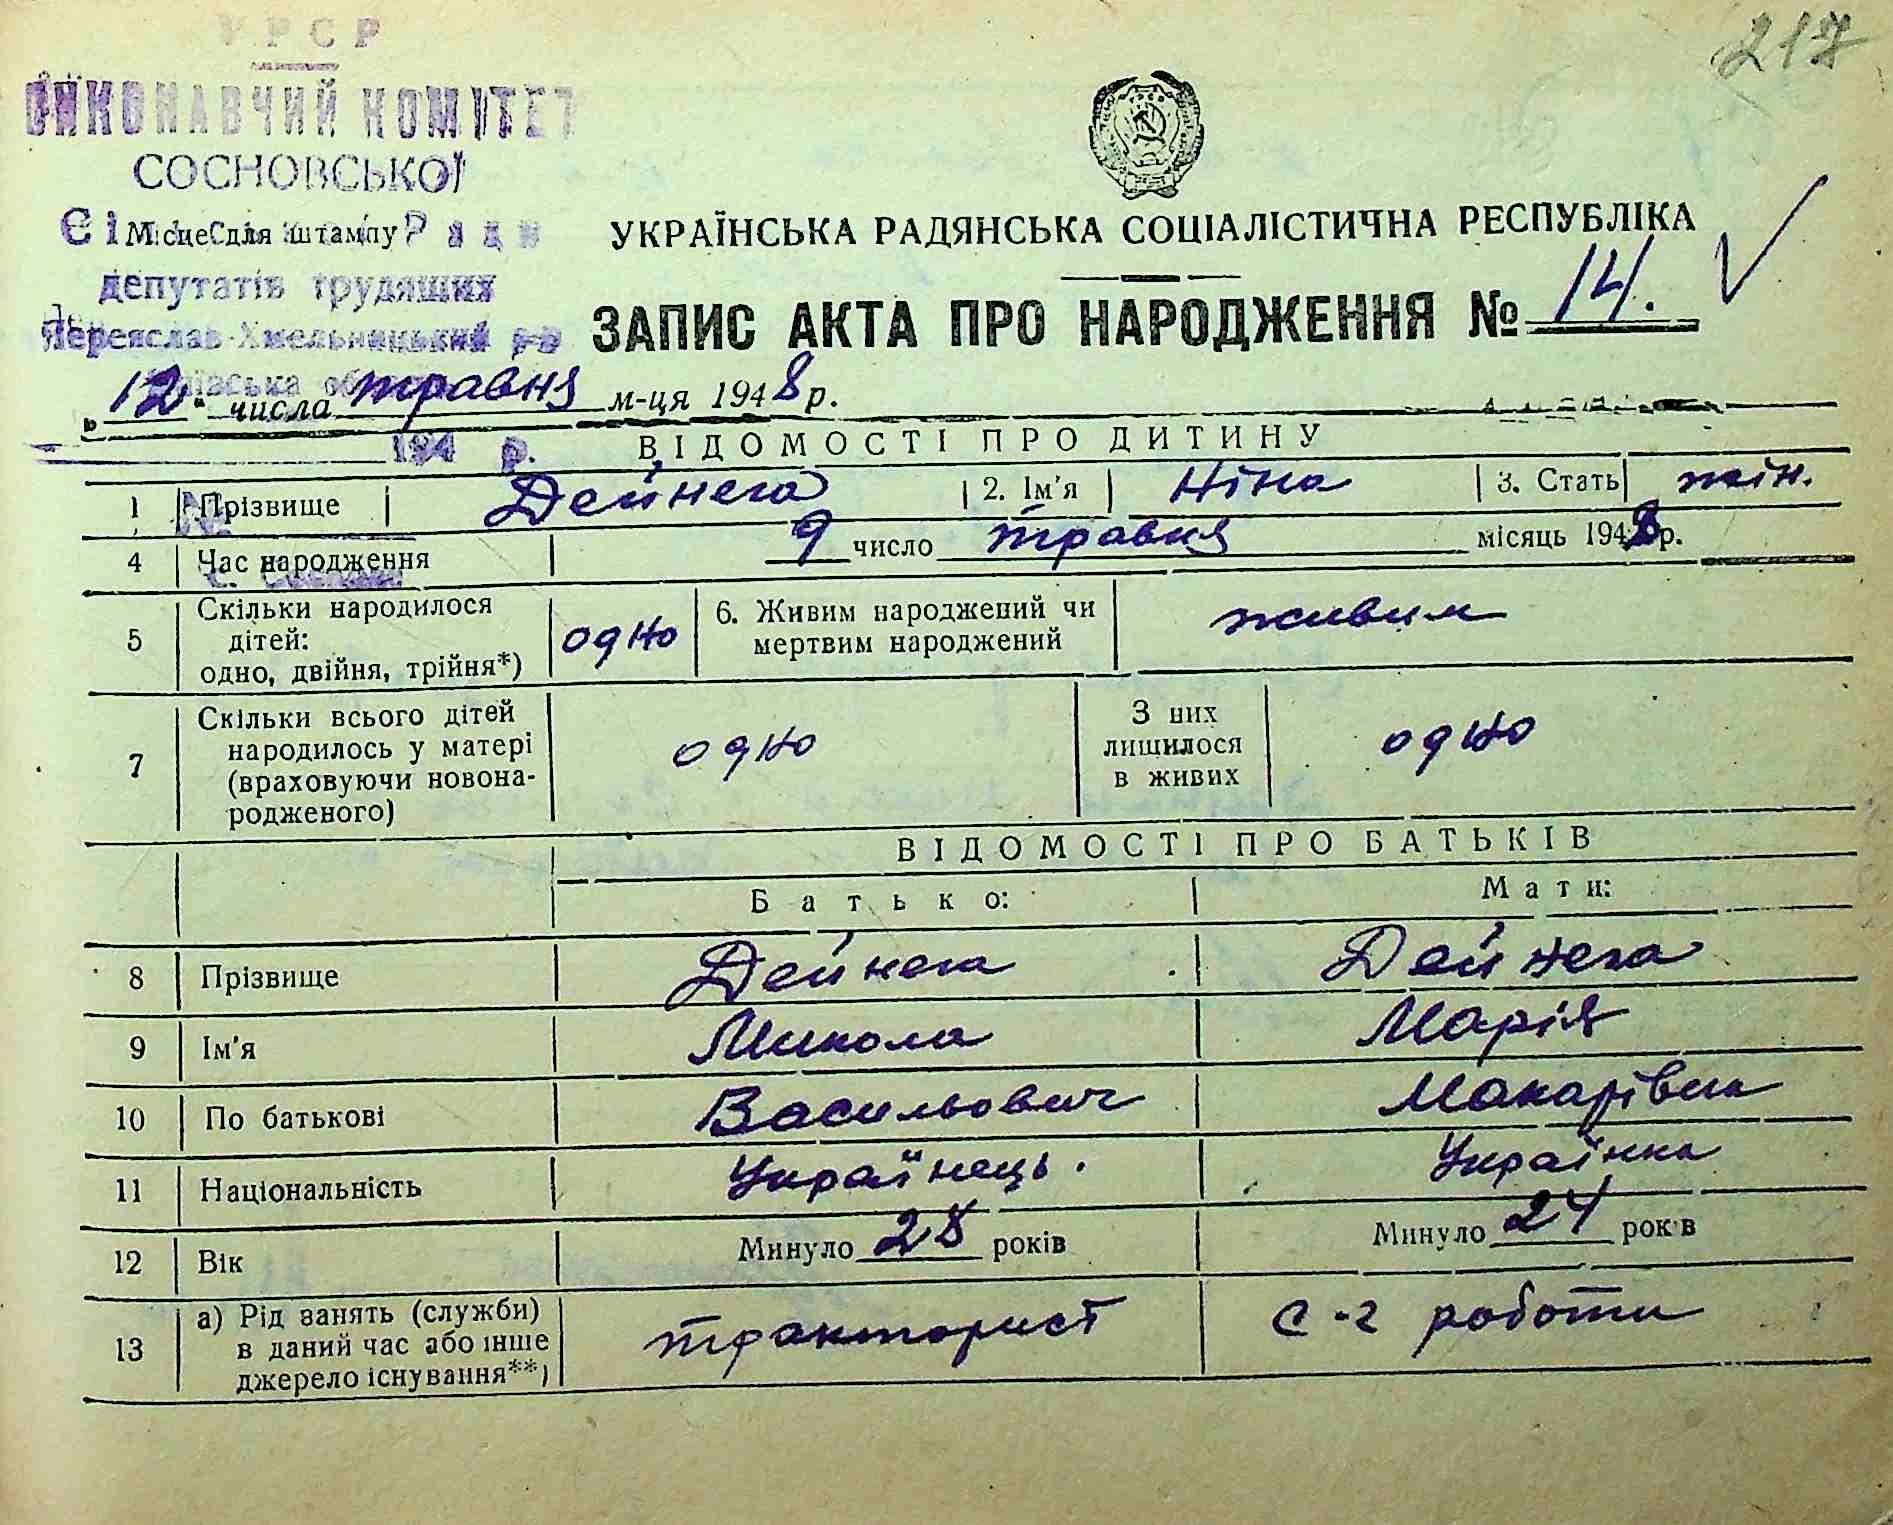 217
УРСР
ВИКОНАВЧИЙ КОМІТЕТ
СОСНОВСЬКОЇ
Місце для штампу
депутатів трудящих
Переяслав-Хмельницький р-н
УКРАЇНСЬКА РАДЯНСЬКА СОЦІАЛІСТИЧНА РЕСПУБЛІКА
ЗАПИС АКТА ПРО НАРОДЖЕННЯ № 14.
„12“ числа травня м-ця 1948 р.
194 р.
ВІДОМОСТІ ПРО ДИТИНУ
1 Прізвище Дейнега 2. Ім'я Ніна 3. Стать жін.
4 Час народження 9 число травня місяць 1948 р.
5 Скільки народилося дітей: одно, двійня, трійня*) одно 6. Живим народжений чи мертвим народжений живим
7 Скільки всього дітей народилось у матері (враховуючи новонародженого) одно З них лишилося в живих одно
ВІДОМОСТІ ПРО БАТЬКІВ
Батько: Мати:
8 Прізвище Дейнега Дейнега
9 Ім'я Микола Марія
10 По батькові Васильович Макарівна
11 Національність Українець. Українка
12 Вік Минуло 28 років Минуло 24 років
13 а) Рід занять (служби) в даний час або інше джерело існування**) тракторист с-г роботи